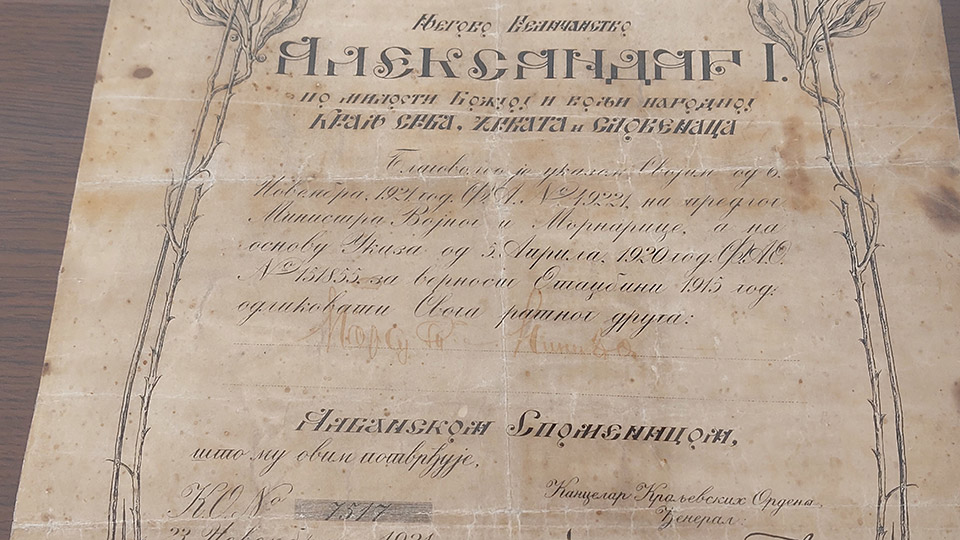 Његово Величанство
Александар I.
по милости Божјој и вољи народној
Краљ Срба, Хрвата и Словенаца
Благоволио је указом Својим од 6.
Новембра, 1921 год. Ф.А. № 14922, на предлог
Министра Војног и Морнарице, а на
основу Указа од 5. Априла, 1920 год. Ф.А.О.
№ 151855. за верност Отаџбини 1915 год.
одликовати Свога ратног друга:
Албанском Споменицом,
што му овим потврђује.
К.О. № 7517
Канцелар Краљевских Ордена,
Ђенерал:
23 1921